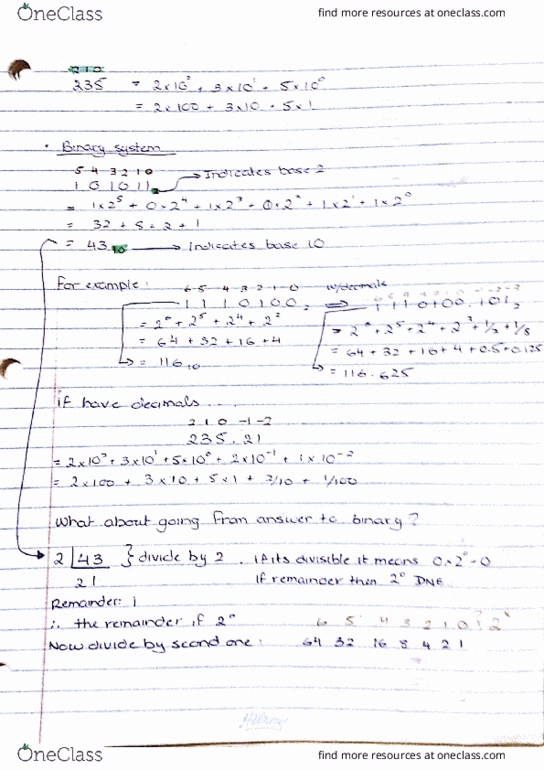 OneClass
find more resources at oneclass.com
2 1 0
235 = 2×10² + 3×10¹ + 5×10⁰
= 2×100 + 3×10 + 5×1
• Binary system
5 4 3 2 1 0
1 0 1 0 1 1₂ → Indicates base 2
= 1×2⁵ + 0×2⁴ + 1×2³ + 0×2² + 1×2¹ + 1×2⁰
= 32 + 8 + 2 + 1
= 43₁₀ → Indicates base 10
For example: 6 5 4 3 2 1 0 w/decimals
1 1 1 0 1 0 0₂ ⇒ 1 1 1 0 1 0 0 . 1 0 1₂
= 2⁶ + 2⁵ + 2⁴ + 2²
= 64 + 32 + 16 + 4
= 116₁₀
= 64 + 32 + 16 + 4 + 0.5 + 0.125
= 116.625
if have decimals
2 1 0 -1 -2
235.21
= 2×10² + 3×10¹ + 5×10⁰ + 2×10⁻¹ + 1×10⁻²
= 2×100 + 3×10 + 5×1 + 2/10 + 1/100
What about going from answer to binary?
2 43 } divide by 2 . if its divisible it means 0×2⁰=0
21 If remainder then 2⁰ DNE
Remainder: 1
∴ the remainder if 2⁰ 6 5 4 3 2 1 0
Now divide by second one: 64 32 16 8 4 2 1
OneClass
find more resources at oneclass.com